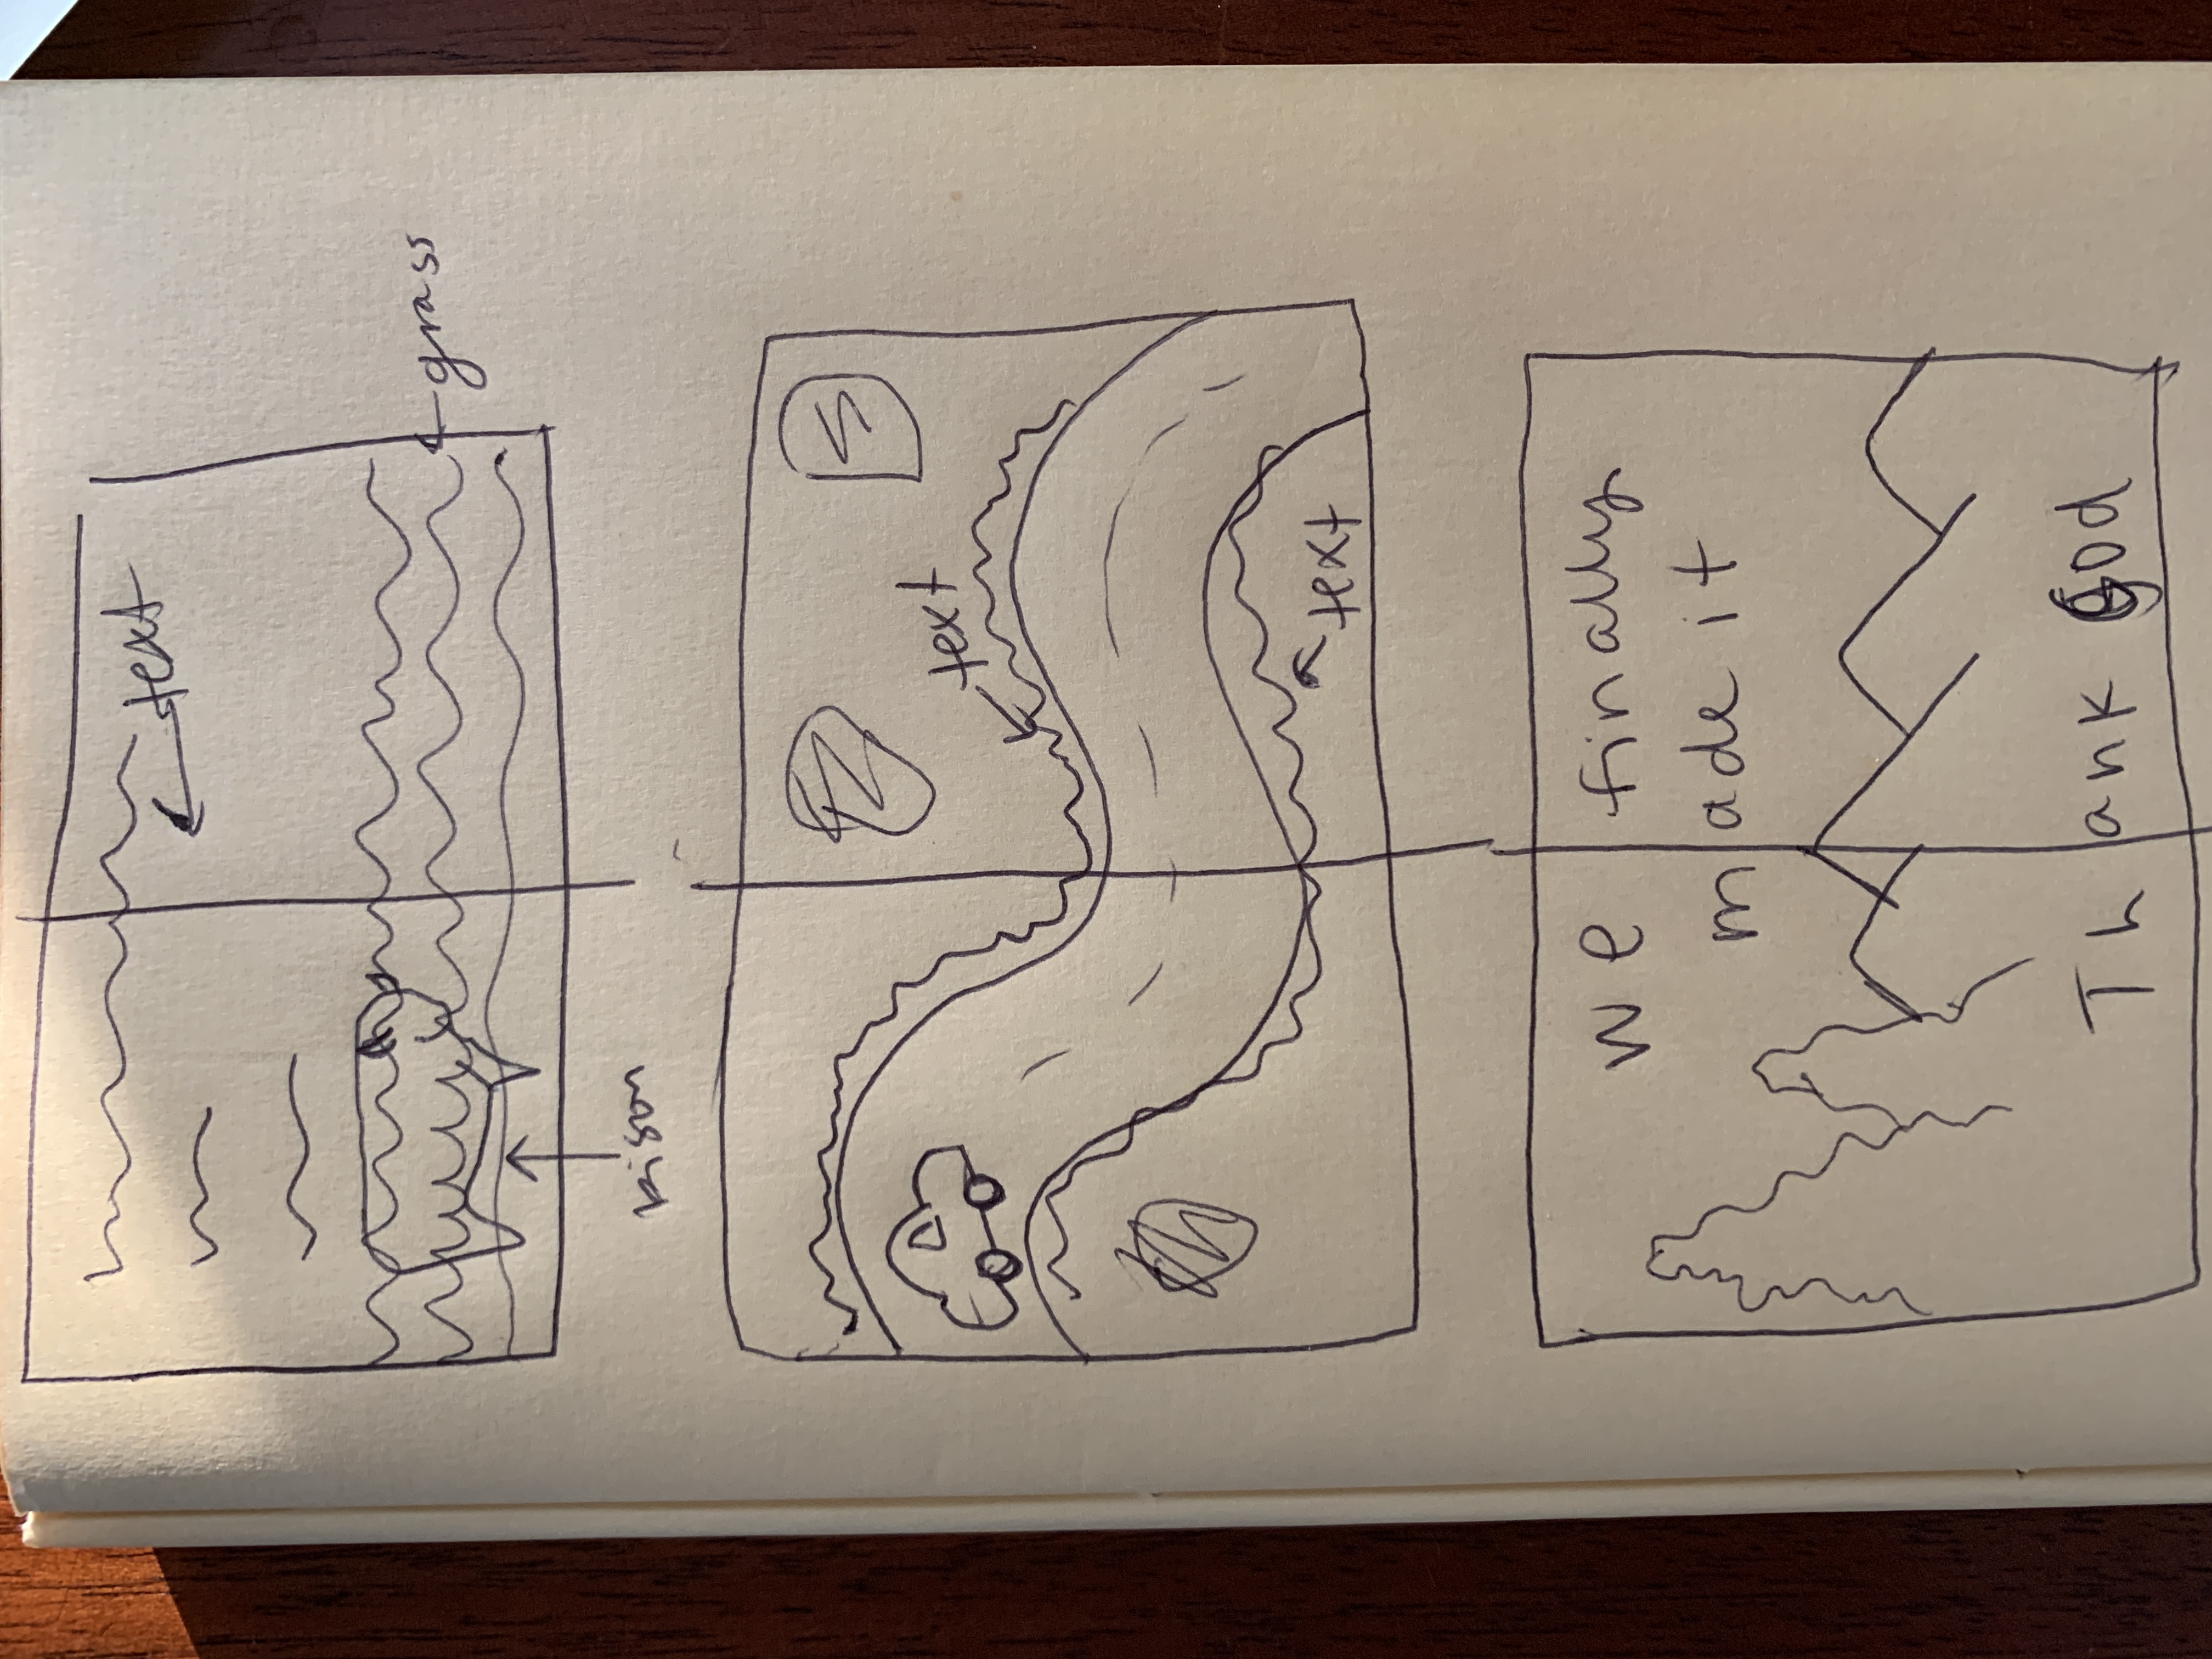 text
grass
bison
text
text
we finally
made it
Thank God